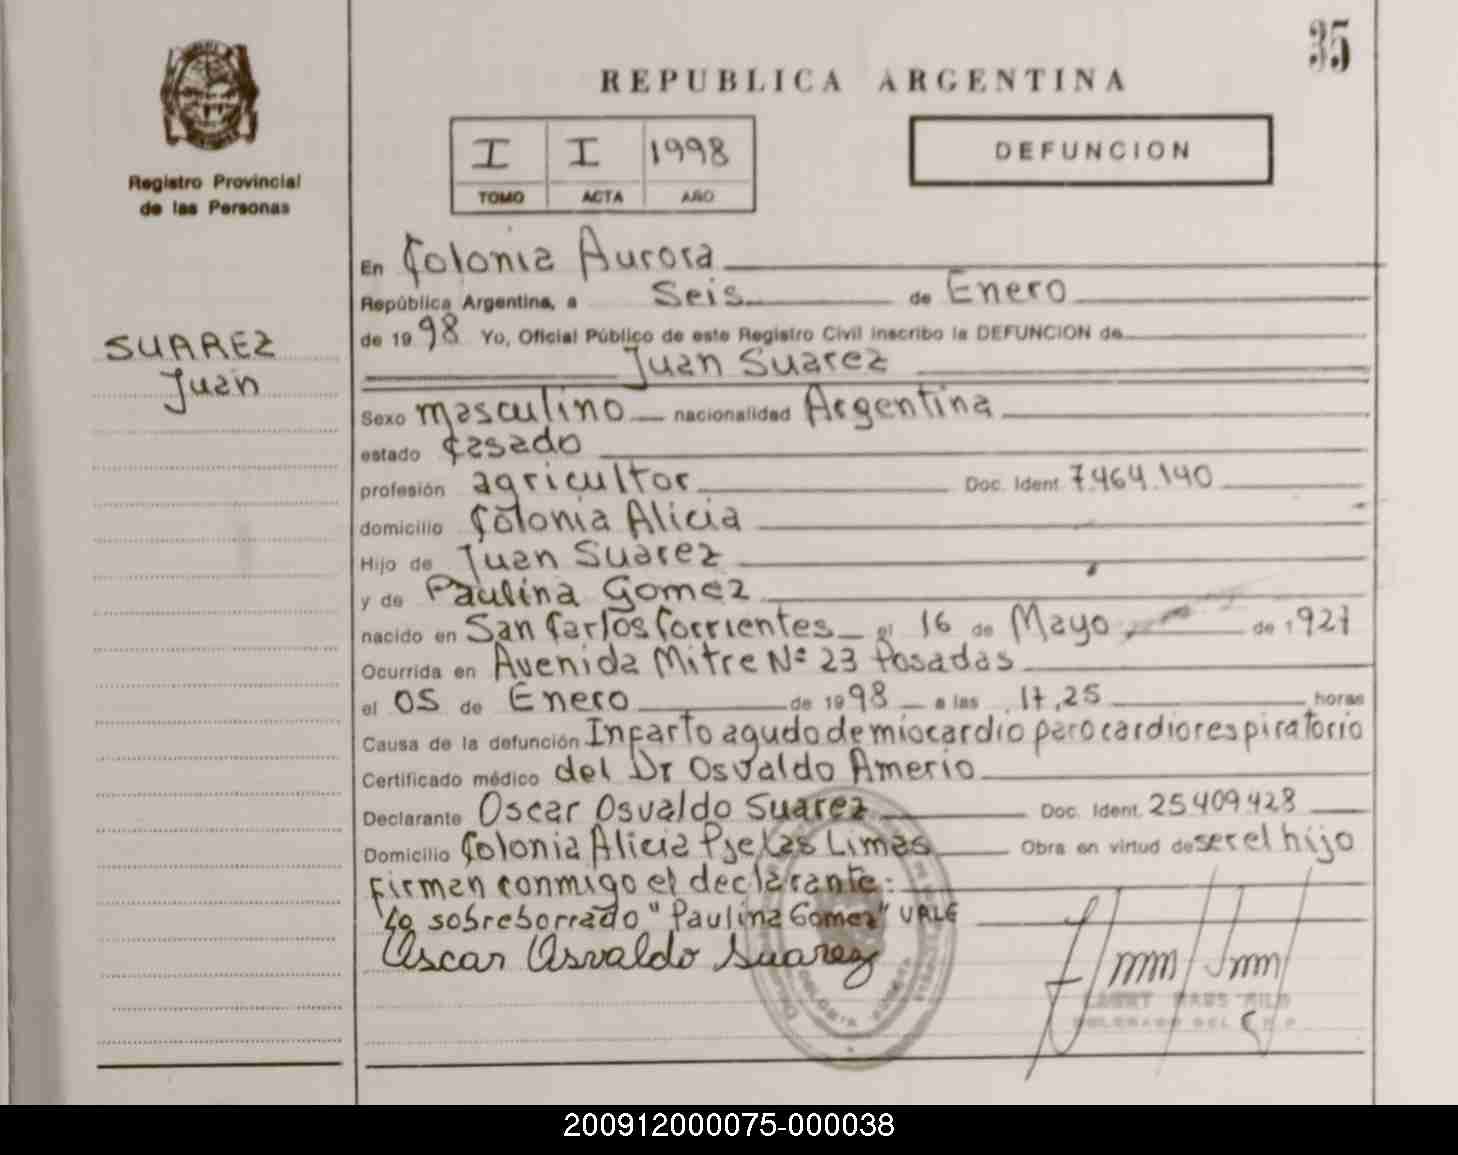 35
REPUBLICA ARGENTINA
Registro Provincial
de las Personas
I I 1998
TOMO ACTA AÑO
DEFUNCION
SUAREZ
Juan
En Colonia Aurora
República Argentina, a Seis de Enero
de 1998 Yo, Oficial Público de este Registro Civil inscribo la DEFUNCION de
Juan Suarez
Sexo masculino nacionalidad Argentina
estado Casado
profesión agricultor Doc. Ident 7.464.140
domicilio Colonia Alicia
Hijo de Juan Suarez
y de Paulina Gomez
nacido en San Carlos Corrientes el 16 de Mayo de 1927
Ocurrida en Avenida Mitre Nº 23 Posadas
el 05 de Enero de 1998 a las 17,25 horas
Causa de la defunción Infarto agudo de miocardio paro cardiorespiratorio
Certificado médico del Dr Osvaldo Amerio
Declarante Oscar Osvaldo Suarez Doc. Ident. 25.409.428
Domicilio Colonia Alicia Pje Las Limas Obra en virtud de ser el hijo
Firman conmigo el declarante:
Lo sobreborrado "Paulina Gomez" VALE
Oscar Osvaldo Suarez
COLONIA AURORA
200912000075-000038